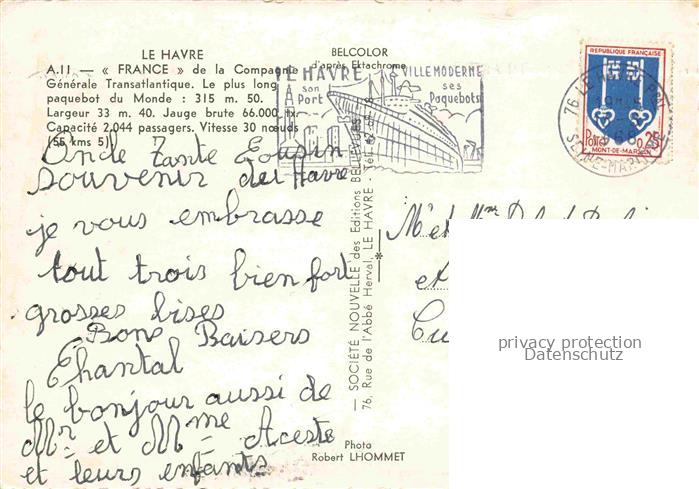 LE HAVRE
A.11 — « FRANCE » de la Compagnie
Générale Transatlantique. Le plus long
paquebot du Monde : 315 m. 50.
Largeur 33 m. 40. Jauge brute 66.000 tx.
Capacité 2.044 passagers. Vitesse 30 nœuds
(55 kms 5)
BELCOLOR
d'après Ektachrome
LE HAVRE
son
Port
VILLE MODERNE
ses
Paquebots
REPUBLIQUE FRANÇAISE
Postes 0,25
MONT-DE-MARSAN
76 LE HAVRE
SEINE-MARITIME
Oncle Tante Cousin
Souvenir du Havre
je vous embrasse
tout trois bien fort
grosses bises
Bons Baisers
Chantal
le bonjour aussi de
Mr et Mme Aceste
et leurs enfants
— SOCIÉTÉ NOUVELLE des Editions BELLEVUES —
76, Rue de l'Abbé Herval, LE HAVRE - Tél.
M et Mme
et
Photo
Robert LHOMMET
privacy protection
Datenschutz